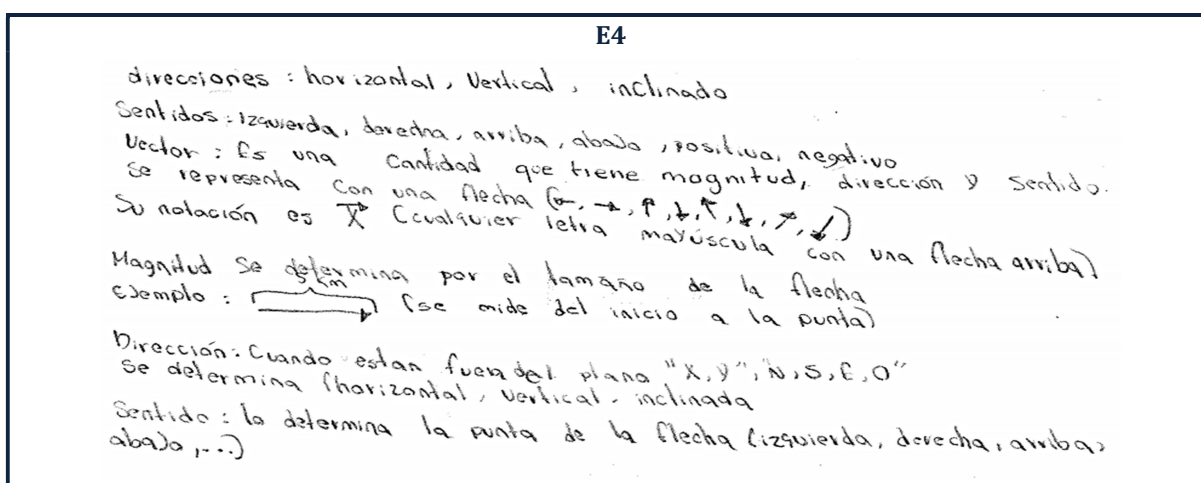 E4
direcciones : horizontal, Vertical, inclinado
Sentidos : Izquierda, derecha, arriba, abajo, positivo, negativo
Vector : Es una Cantidad que tiene magnitud, dirección y Sentido.
se representa con una flecha (←, →, ↑, ↓, ↖, ↓, ↗, ↙)
Su notación es X⃗ (cualquier letra mayúscula con una flecha arriba)
Magnitud Se determina por el tamaño de la flecha
5 km
Ejemplo : (se mide del inicio a la punta)
Dirección : Cuando estan fuera del plano "X, y", N, S, E, O"
se determina (horizontal, vertical, inclinada
Sentido : lo determina la punta de la flecha (izquierda, derecha, arriba,
abajo, ...)